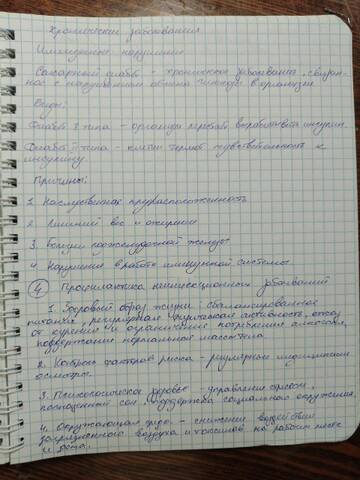 Хронические заболевания
Иммунные нарушения
Сахарный диабет - хроническое заболевание, связан-
ное с нарушением обмена глюкозы в организме
Виды:
Диабет I типа - организм перестаёт вырабатывать инсулин.
Диабет II типа - клетки теряют чувствительность к
инсулину.
Причины:
1. Наследственная предрасположенность
2. Лишний вес и ожирение
3. Болезни поджелудочной железы
4. Нарушения в работе иммунной системы
4 Профилактика неинфекционных заболеваний
1. Здоровый образ жизни - сбалансированное
питание, регулярная физическая активность, отказ
от курения и ограничение потребления алкоголя,
поддержание нормальной массы тела
2. Контроль факторов риска - регулярные медицинские
осмотры.
3. Психологическое здоровье - управление стрессом,
полноценный сон, поддержка социального окружения.
4. Окружающая среда - снижение воздействия
загрязненного воздуха и токсинов на рабочем месте
и дома.